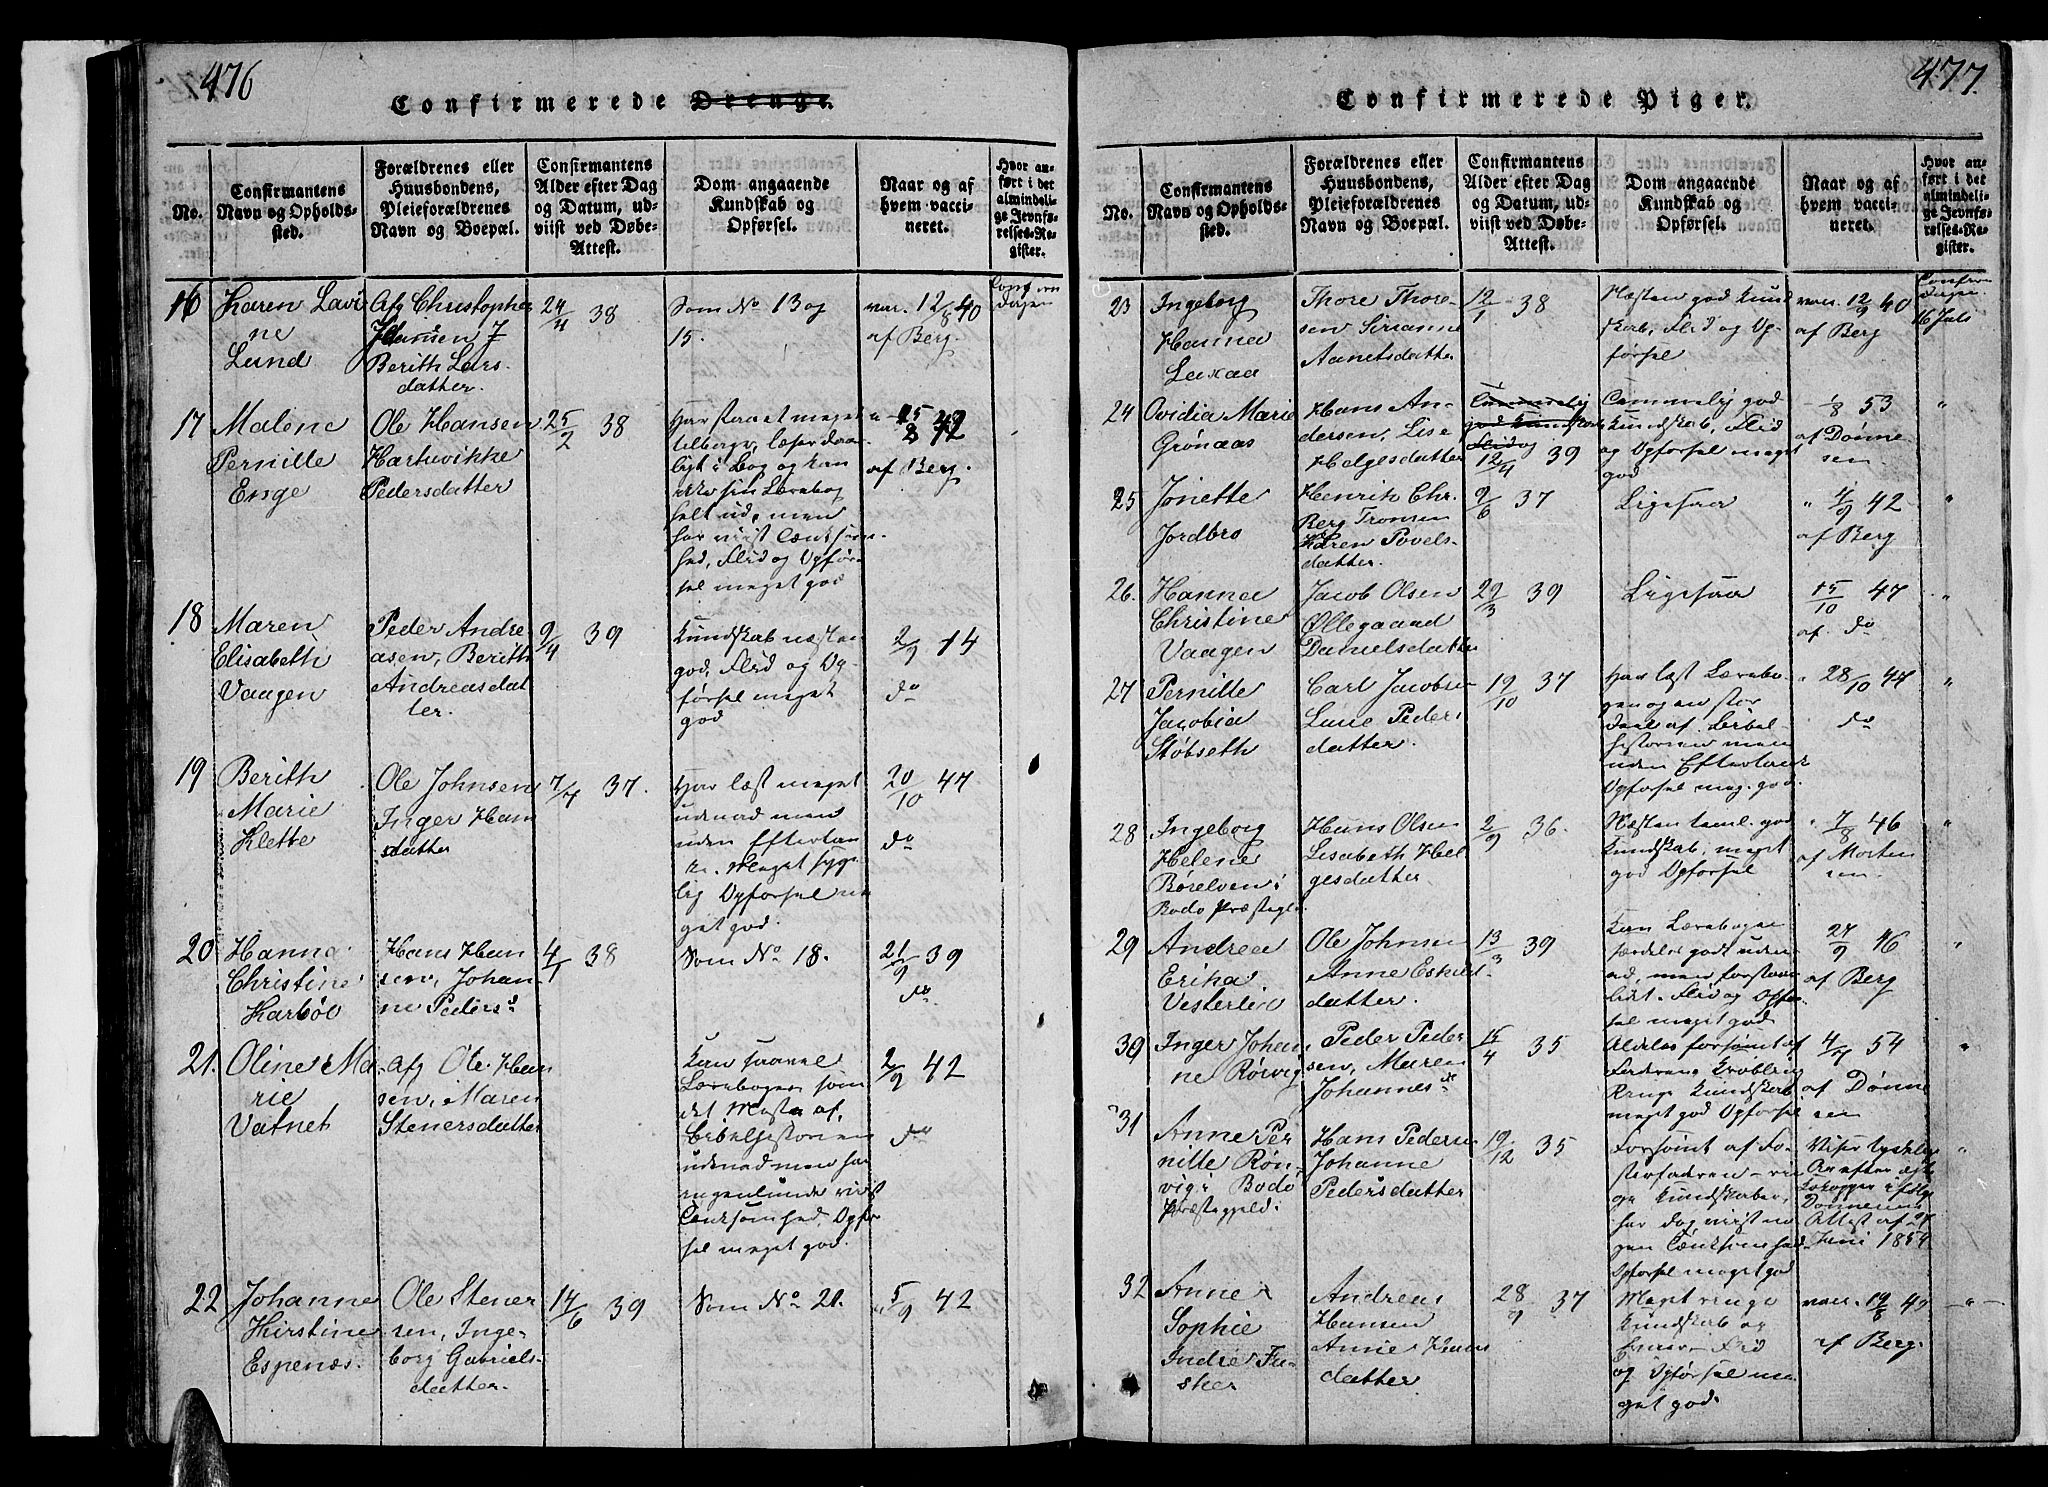 476
Confirmerede Drenge.
No.
Confirmantens
Navn og Opholds-
sted.
Forældrenes eller
Huusbondens,
Pleieforældrenes
Navn og Boepæl.
Confirmantens
Alder efter Dag
og Datum, ud-
viist ved Døbe-
Attest.
Dom angaaende
Kundskab og
Opførsel.
Naar og af
hvem vacci-
neret.
Hvor an-
ført i det
almindeli-
ge Jevnfø-
relses-Re-
gister.
16 Karen Lavi
ne
Lund
Afg Christopher
Hansen &
Berith Lars
datter.
24/4 38
Som No 13 og
15.
vac. 12/8 40
af Berg.
17 Malene
Pernille
Enge
Ole Hansen
Hartvikke
Pedersdatter
25/2 38
Har staaet meget
tilbage, læser daar-
ligt i Bog og kan
ikke sin Lærebog
helt ud, men
har viist Tænksom-
hed, Flid og Opfør-
sel meget god
af Berg.
18 Maren
Elisabeth
Vaagen
Peder Andre
asen, Berith
Andreasdat
ter.
9/4 39
Kundskab næsten
god, Flid og Op-
førsel meget
god
2/9
do
19 Berith
Marie
Klette
Ole Johnsen
Inger Han
sdatter
7/4 37.
Har læst meget
udenad men
uden Eftertan
ke. Meget syge
lig Opførsel me
get god.
20/10 47
do
20 Hanna
Christine
Karbøl
Hans Han
sen, Johan-
ne Peders
4/1 38
Som No 18.
21/9 39
do.
21. Oline Ma-
rie
Vatnet
Afg Ole Han
sen, Maren
Stenersdatter
Kan saavel
Lærebogen som
det Meste af
Bibelhistorien
udenad men har
ingenlunde viist
Tænksomhed, Opfør
sel meget god.
2/9 42
do
22 Johanne
Kirstine
Espenæs
Ole Stener
sen, Inge-
borg Gabriels-
datter.
14/6 39
Som No 21.
" 5/9 42
477.
Confirmerede Piger.
No.
Confirmantens
Navn og Opholds-
sted.
Forældrenes eller
Huusbondens,
Pleieforældrenes
Navn og Boepæl.
Confirmantens
Alder efter Dag
og Datum, ud-
viist ved Døbe-
Attest.
Dom angaaende
Kundskab og
Opførsel.
Naar og af
hvem vacci-
neret.
Hvor an-
ført i det
almindeli-
ge Jevnfø-
relses-Re-
gister.
23 Ingeborg
Hanna
Laxaa
Thore Thore
sen Sirianne
Aanetsdatter
12/1 38
Næsten god Kund
skab, Flid og Op
førsel
vac. 12/9 40
af Berg
16 Juli
24 Ovidia Marie
Grønaas
Hans An-
dersen, Lise
Helgesdatter
12/4 39
Temmelig god
Kundskab, Flid
og Opførsel meget
god
1/8 53
af Dønne
sen.
"
25 Jonette
Jordbro
Henrik Chr.
Berg Tronsen
Karen Povels-
datter.
9/6 37
Ligesaa
" 4/9 42
af Berg
"
26. Hanna
Christine
Vaagen
Jacob Olsen
Øllegaard
Danielsdatter
29/3 39
Ligesaa
15/10 47
af do
"
27 Pernille
Jacobia
Støbseth
Carl Jacobse
Lune Peders
datter.
19/10 37
Har læst Lærebo
gen og en stor
Deel af Bibel-
historien men
uden Eftertanke
Opførsel meg. god.
" 28/10 47
do
"
28 Ingeborg
Helene
Børelven i
Bodø Præstegl.
Hans Olsen
Lisabeth Hel
gesdatter
2/9 36.
Næsten teml. god
Kundskab, meget
god Opførsel
" 7/8 46
af Morten
sen.
"
29 Andrea
Erika
Vesterlid
Ole Johnsen
Anne Eskild-
datter.
13/3 39
Kan Lærebogen
særdeles godt uden-
ad, men forstaar
lidt. Flid og Opfør
sel meget god
27/9 46
af Berg
"
30 Inger Johan
ne Rørvig
Peder Peder
sen, Maren
Johannesdr
15/4 35
Aldeles forsømt af
Ringe Kundskab
meget god Opførsel
4/7 54
af Dønne
sen
"
31 Anne Per
nille Røn-
vig i Bodø
Præstegjeld.
Hans Pederse
Johanne
Pedersdatter
19/12 35
Forsømt af Fo-
sterfaderen – rin
ge Kundskaber,
har dog viist no
gen Tænksomhed.
Opførsel meget god
Viser tydelige
Ar efter ægte
Kokopper ifølge
Dønnesens
Attest af 21
Juni 1854
"
32 Anne
Sophie
Indre Fu-
sker
Andreas
Hansen
Anne Hans
datter
28/9 37
Meget ringe
Kundskab og
Flid
og Opførsel me
get god.
vac. 19/8 42
af Berg.
– " –